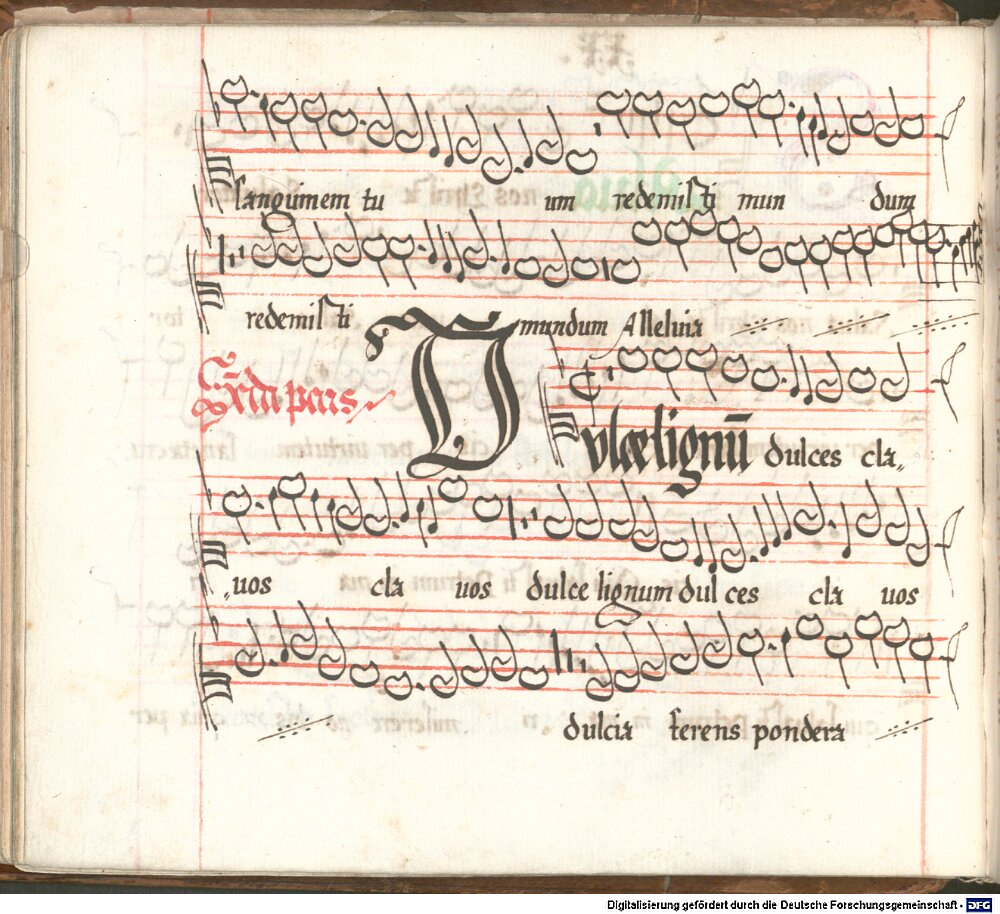 sanguinem tu um redemisti mun dum
redemisti mundum Alleluia
Scda pars
Dulce lignū dulces cla,,
,,uos cla uos dulce lignum dul ces cla uos
dulcia ferens pondera
Digitalisierung gefördert durch die Deutsche Forschungsgemeinschaft - DFG